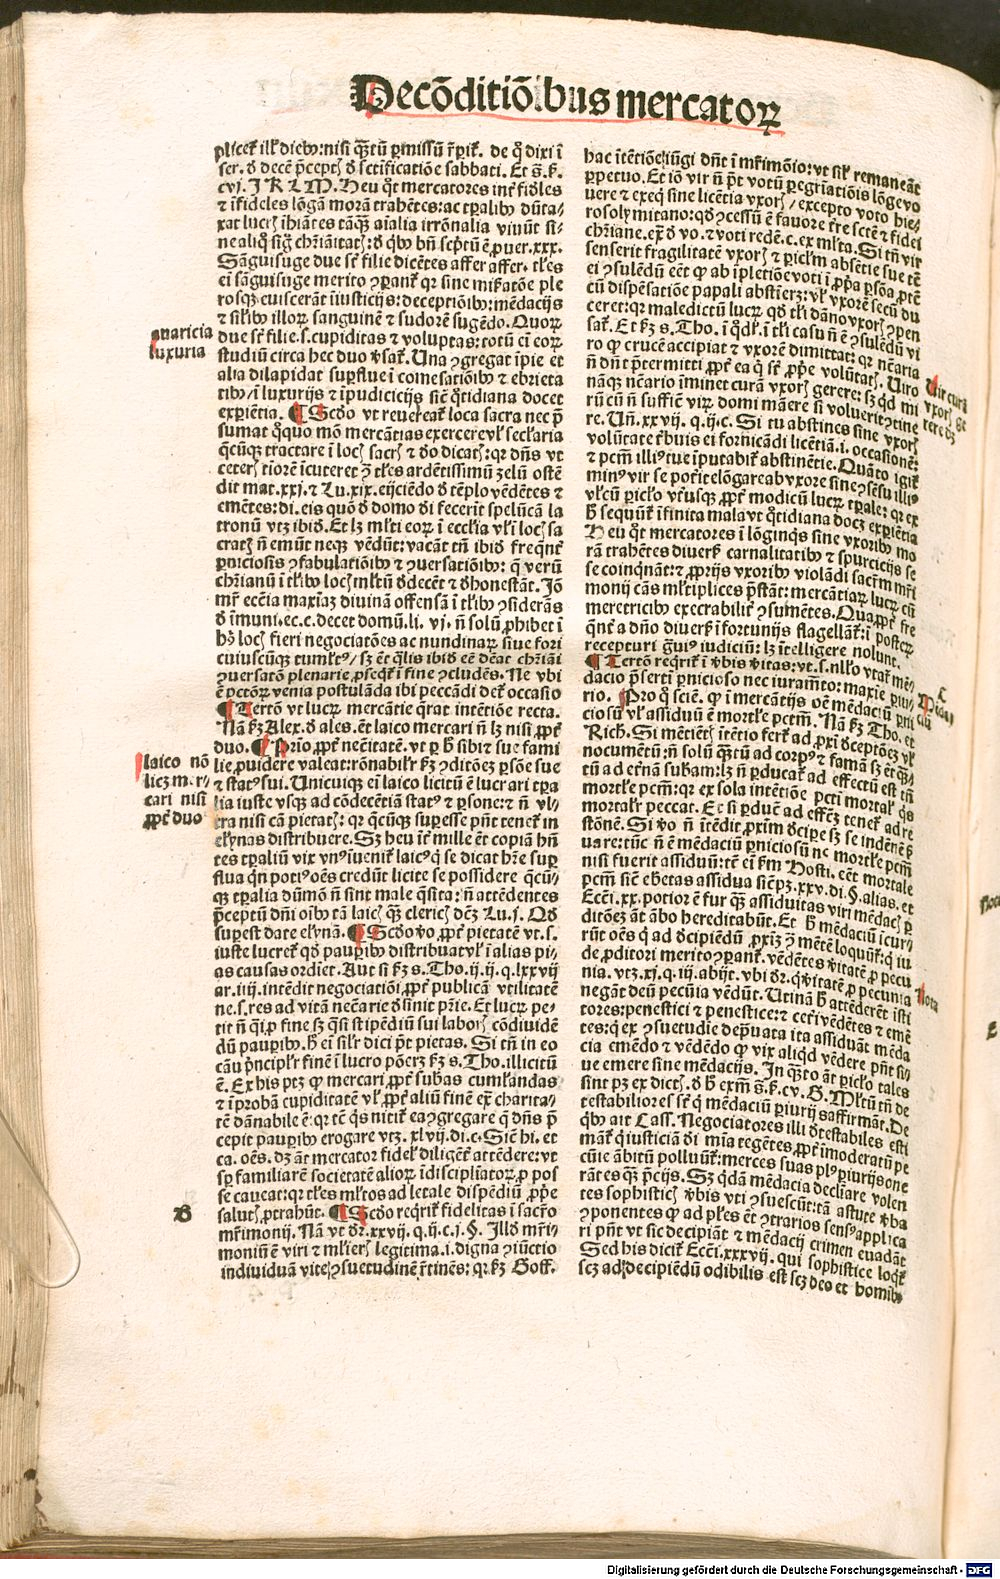 De cōditiōibus mercatoꝝ
plicet̄ ill' diebꝰ: nisi q̄tū ꝑmissū
ser. ꝺ decē p̄ceptꝭ ꝺ sctificatiōe sabbati. Et
cvj. I K L M. Heu qꝛ mercatores int̄ fiꝺles
⁊ īfideles lōgā morā trahētes: ac tꝑalibꝰ dūta⸗
xat lucrꝭ īhiātes tāqꝫ aīalia irrōnalia viuūt si⸗
ne aliqͥ signꝭ chr̄ianitatꝭ: ꝺ qͥbꝰ bn̄ scptū ē ꝓuer. xxx.
Sāguisuge due st̄ filie dicētes affer affer. tl̄es
ei sāguisuge merito ꝯꝑant̄ qꝛ sine miẜatōe ple
rosqꝫ euiscerāt iiusticijs: deceptiōibꝰ: mēdacijs
⁊ sil'ibꝰ illoꝝ sanguinē ⁊ sudorē sugēdo. Quoꝝ
due st̄ filie. s. cupiditas ⁊ voluptas: totū ei eoꝝ
studiū circa hec duo v̓sat̄. Una ꝯgregat īpie et
alia dilapidat suꝑflue ī comesatiōibꝰ ⁊ ebrieta
tibꝰ / ī luxurijs ⁊ īpudicicijs sic̄ qͦtidiana docet
exꝑiētia. ¶ Scd̓o vt reuereat̄ loca sacra nec p̄
sumat qͦquo mō mercātias exercere vl' secl'aria
qͨcūqꝫ tractare ī locꝭ sacrꝭ ⁊ ꝺo dicatꝭ: qꝛ dn̄s vt
ceterꝭ tiōrē īcuteret ꝯ̄ tl̄es ardētissimū zelū ostē
dit mat. xxj. ⁊ Lu. xix. eijciēdo ꝺ tēplo vēdētes ⁊
emētes: di. eis quō ꝺ domo ꝺi fecerīt spelūcā la
tronū vtꝫ ibiꝺ. Et lꝫ ml'ti eoꝝ ī eccl'ia vl' ī locꝭ sa
cratꝭ n̄ emūt neqꝫ vēdūt: vacāt tn̄ ibiꝺ freqn̄t̄
ꝑniciosis ꝯfabulatiōibꝰ ⁊ ꝯuersatiōibꝰ: q̄ verū
chr̄ianū ī tl'ibꝰ locꝭ ml'tū ꝺdecēt ⁊ ꝺhonestāt. Iō
mr̄ ecc̄ia maxīaꝫ diuinā offensā ī tl'ibꝰ ꝯsiderās
ꝺ īmuni. ec. c. decet domū. li. vj. n̄ solū ꝓhibet ī
hꝰ locꝭ fieri negociatōes ac nundinaꝝ siue fori
cuiuscūqꝫ tumltꝰ / sꝫ ēt qͣlis ibiꝺ eē ꝺeāt chr̄iāi
ꝯuersatō plenarie ꝓseqͥt̄ ī fine ꝯcludēs. Ne vbi
ē pctōꝝ venia postulāda ibi peccādi det̄ occasio
¶ Tertō vt lucꝝ mercātie q̄rat intētiōe recta.
Nā kꝫ Alex. ꝺ ales. ēt laico mercari n̄ lꝫ nisi ꝓpt̄
duo. ¶ Prīo ꝓpt̄ nec̄itatē. vt ꝑ h̄ sibi ⁊ sue fami
lie ꝓuidere valeat: rōnabilr̄ kꝫ ꝯditōeꝫ ꝑsōe sue
⁊ statꝰ sui. Unicuiqꝫ ei laico licitū ē lucrari tꝑa
lia iuste vsqꝫ ad cōdecētiā statꝰ ⁊ ꝑsone: ⁊ n̄ vl⸗
tra nisi cā pietatꝭ: qꝛ qͨcūqꝫ suꝑesse pn̄t tenet̄ in
elȳnas distribuere. Sꝫ heu īt̄ mille ēt copiā hn̄
tes tꝑaliū vix vnꝰ iuenit̄ laicꝰ qͥ se dicat hr̄e suꝑ
flua qͥn potiꝰ oēs credūt licite se possidere qͨcū⸗
qꝫ tꝑalia dūmō n̄ sint male qͥsita: n̄ attēdentes
p̄ceptū dn̄i oībꝰ tā laicꝭ qꝫ clericꝭ dc̄ꝫ Lu. j. Qꝺ
suꝑest date elȳnā. ¶ Scd̓o v̓o ꝓpt̄ pietatē vt. s.
iuste lucret̄ qꝺ pauꝑibꝰ distribuat vl' ī alias pi⸗
as causas ordiet. Aut si kꝫ s. Tho. ij. ij. q. lxxvij
ar. iiij. intēdit negociatiōi ꝓpt̄ publicā vtilitatē
ne. s. res ad vitā nec̄arie ꝺfinit pr̄ie. Et lucꝝ pe⸗
tit n̄ qͣi ꝓ fine sꝫ qͣsi stipēdiū sui laborꝭ cōdiuidē
dū pauꝑibꝰ. h̄ ei silr̄ dici pt̄ pietas. Si tn̄ in eo
cāu pͥncipl'r finē ī lucro pōerꝫ kꝫ s. Tho. illicitū
ē. Ex his ptꝫ ꝙ mercari ꝓpt̄ subas cumlandas
⁊ īprobā cupiditatē vl' ꝓpt̄ aliū finē ex̄ charita⸗
tē dānabile ē: qꝛ tē qͣs nitit̄ ea ꝯgregare q̄ dn̄s p̄
cepit pauꝑibꝰ erogare vtꝫ. xlvij. di. c. Sic̄ hi. et
ca. oēs. ꝺꝫ āt mercator fidel' diligēt̄ attēdere: vt
sꝑ familiarē societatē alioꝝ īdisciplīatoꝝ ꝓ pos
se caueat: qꝛ tl̄es ml'tos ad letale dispēdiū ꝓpͥe
salutꝭ ꝓtrahūt. ¶ Scd̓o reqͥrit̄ fidelitas ī sacr̄o
mr̄imonij. Nā vt dr̄. xxvij. q. ij. c. j. §. Illd̓ mr̄i⸗
moniū ē viri ⁊ ml'ierꝭ legitima. i. digna ꝯiūctio
individuā vite ꝯsuetudinē r̄tinēs: qꝛ kꝫ Goff.
auaricia
luxuria
laico nō
licꝫ mer⸗
cari nisi
ꝓpt̄ duo
B
hac ītētiōe iūgi dn̄t ī mr̄imōio: vt sil' remaneāt
ꝑpetuo. Et iō vir n̄ pt̄ votū ꝑegriatiōis lōge vo
uere ⁊ exeqͥ sine licētia vxorꝭ / excepto voto hie⸗
rosolymitano: qꝺ ꝯcessū ē fauore tr̄e sctē ⁊ fidei
chr̄iane. ex̄ ꝺ vo. ⁊ voti redē. c. ex ml'ta. Si tn̄ vir
senserit fragilitatē vxorꝭ ⁊ ꝑicl'm absētie sue tē
ei ꝯsulēdū eēt ꝙ ab īpletiōe voti ī ꝓpͥa ꝑsōa ꝑ tē
cū dispēsatiōe papali abstīerꝫ: vl' vxorē secū du
ceret: qꝛ maledictū lucꝝ qꝺ tl'i dāno vxorꝭ ꝯpen
sat̄. Et kꝫ s. Tho. ī qͦdl'. ī tl'i casu n̄ ē ꝯsulēdū vi
ro ꝙ crucē accipiat ⁊ vxorē dimittat: qꝛ nec̄aria
n̄ dn̄t p̄termitti ꝓpt̄ ea q̄ st̄ ꝓpͥe volūtatꝭ. Uiro
nāqꝫ nec̄ario īminet curā vxorꝭ gerere: sꝫ qꝺ mi
rū cū n̄ sufficīe viꝝ domi māere si voluerit ꝯtine
re. Uñ. xxvij. q. ij. c. Si tu abstines sine vxorꝭ
volūtate tͥbuis ei fornicādi licētiā. i. occasionē:
⁊ pctm̄ illiꝰ tue īputabit̄ abstinētie. Quāto igit̄
minꝰ vir se poterit elōgare ab vxore sine ꝯsēsu illiꝰ
vl' cū ꝑicl'o vtͥusqꝫ ꝓpt̄ modicū lucꝝ tꝑale: qꝛ ex
h̄ sequūt̄ īfinita mala vt qͦtidiana docꝫ exꝑiētia
Heu qꝛ mercatores ī lōginqͥs sine vxoribꝰ mo
rā trahētes diuers̄ carnalitatibꝰ ⁊ spurcicijs se
se coinqͥnāt: ⁊ ꝓprijs vxoribꝰ violādi sacr̄m mr̄i
monij cās ml'tiplices p̄stāt: mercātiaꝝ lucꝝ cū
meretricibꝰ execrabilit̄ ꝯsumētes. Quaꝓpt̄ fre
qn̄t̄ a dn̄o diuers̄ īfortunijs flagellāt̄: ī posteꝝ
recepturi gͣuiꝰ iudiciū: lꝫ ītelligere nolunt.
¶ Tertō reqͥrit̄ ī v̓bis v̓itas: vt. s. nl'lo vtat̄ mē⸗
dacio p̄serti ꝑnicioso nec iuram̄to: maxie ꝑiu⸗
rio. Pro qͦ sciē. ꝙ ī mercātijs oē mēdaciū ꝑni
ciosū vl' assiduū ē mortl'e pctm̄. Nā kꝫ Tho. et
Rich. Si mētiētꝭ ītētio fert̄ ad ꝓxi ꝺceptōeꝫ vl'
nocumētū: n̄ solū qͣtū ad corpꝰ ⁊ famā sꝫ et qͣ⸗
tū ad et̄nā subam: lꝫ n̄ ꝑducat̄ ad effectū est tn̄
mortl'e pctm̄: qꝛ ex sola intētiōe pcti mortal' qͥs
mortal'r peccat. Et si ꝑduc̄ ad effcꝫ tenet̄ ad re
stōnē. Si v̓o n̄ ītēdit ꝓxīm ꝺcipe sꝫ se indēnē ẜ
uare: tūc n̄ ē mēdaciū ꝑniciosū nc̄ mortl'e pctm̄
nisi fuerit assiduū: tē ei km̄ Hosti. eēt mortale
pctm̄ sic̄ ebͥetas assidua siēpꝫ. xxv. di. §. alias. et
Ecci. xx. potior ē fur qͣ assiduitas viri mēdacꝭ ꝑ
ditōeꝫ āt ābo hereditabūt. Et h̄ mēdaciū icurr⸗
rūt oēs qͥ ad ꝺcipiēdū ꝓxiꝫ ꝯ̄ mētē loquūt̄: qͥ iu
de ꝓditori merito ꝯꝑant̄. vēdētes v̓itatē ꝓ pecu
nia. vtꝫ. xj. q. iij. abijt. vbi dr̄. qͥ v̓itatē ꝓ pecunia
negāt deū pecūia vēdūt. Utinā h̄ attēderēt isti
tores: penestici ⁊ penestice: ⁊ cet̄i vēdētes ⁊ emē
tes: qͥ ex ꝯsuetudie depͥuata ita assiduāt mēda
cia emēdo ⁊ vēdēdo ꝙ vix aliqͥd vēdere pn̄t si⸗
ue emere sine mēdacijs. In qͣto āt ꝑicl'o tales
sint pꝫ ex dictꝭ. ꝺ h̄ exm̄ s. k. cv. G. Ml'tū tn̄ de
testabiliores st̄ qͥ mēdaciū ꝑiurijs affirmāt. De
qͥbꝰ ait Cass. Negociatores illi ꝺtestabiles esti
mant̄ qͥ iusticiā ꝺi mīa tegētes ꝓpt̄ imoderatū pe
cūie ābitū polluūt̄: merces suas plꝰ ꝑiurijs one
rātes qͣ p̄cijs. Sꝫ qͥdā mēdacia declīare volen
tes sophisticꝭ v̓bis vti ꝯsuescūt: tā astute v̓ba
ꝯponentes ꝙ ad pl̄es ēt ꝯtrarios sensꝰ applica
ri pn̄t vt sic decipiāt ⁊ mēdacij crimen euadāt
Sed his dicit̄ Ecci. xxxvij. qui sophistice loqͥt̄
scꝫ ad decipiēdū odibilis est scꝫ deo et homībꝰ
Uir curā
vxorꝭ ge
rere ꝺꝫ
C
Mēda⸗
ciū
Nota